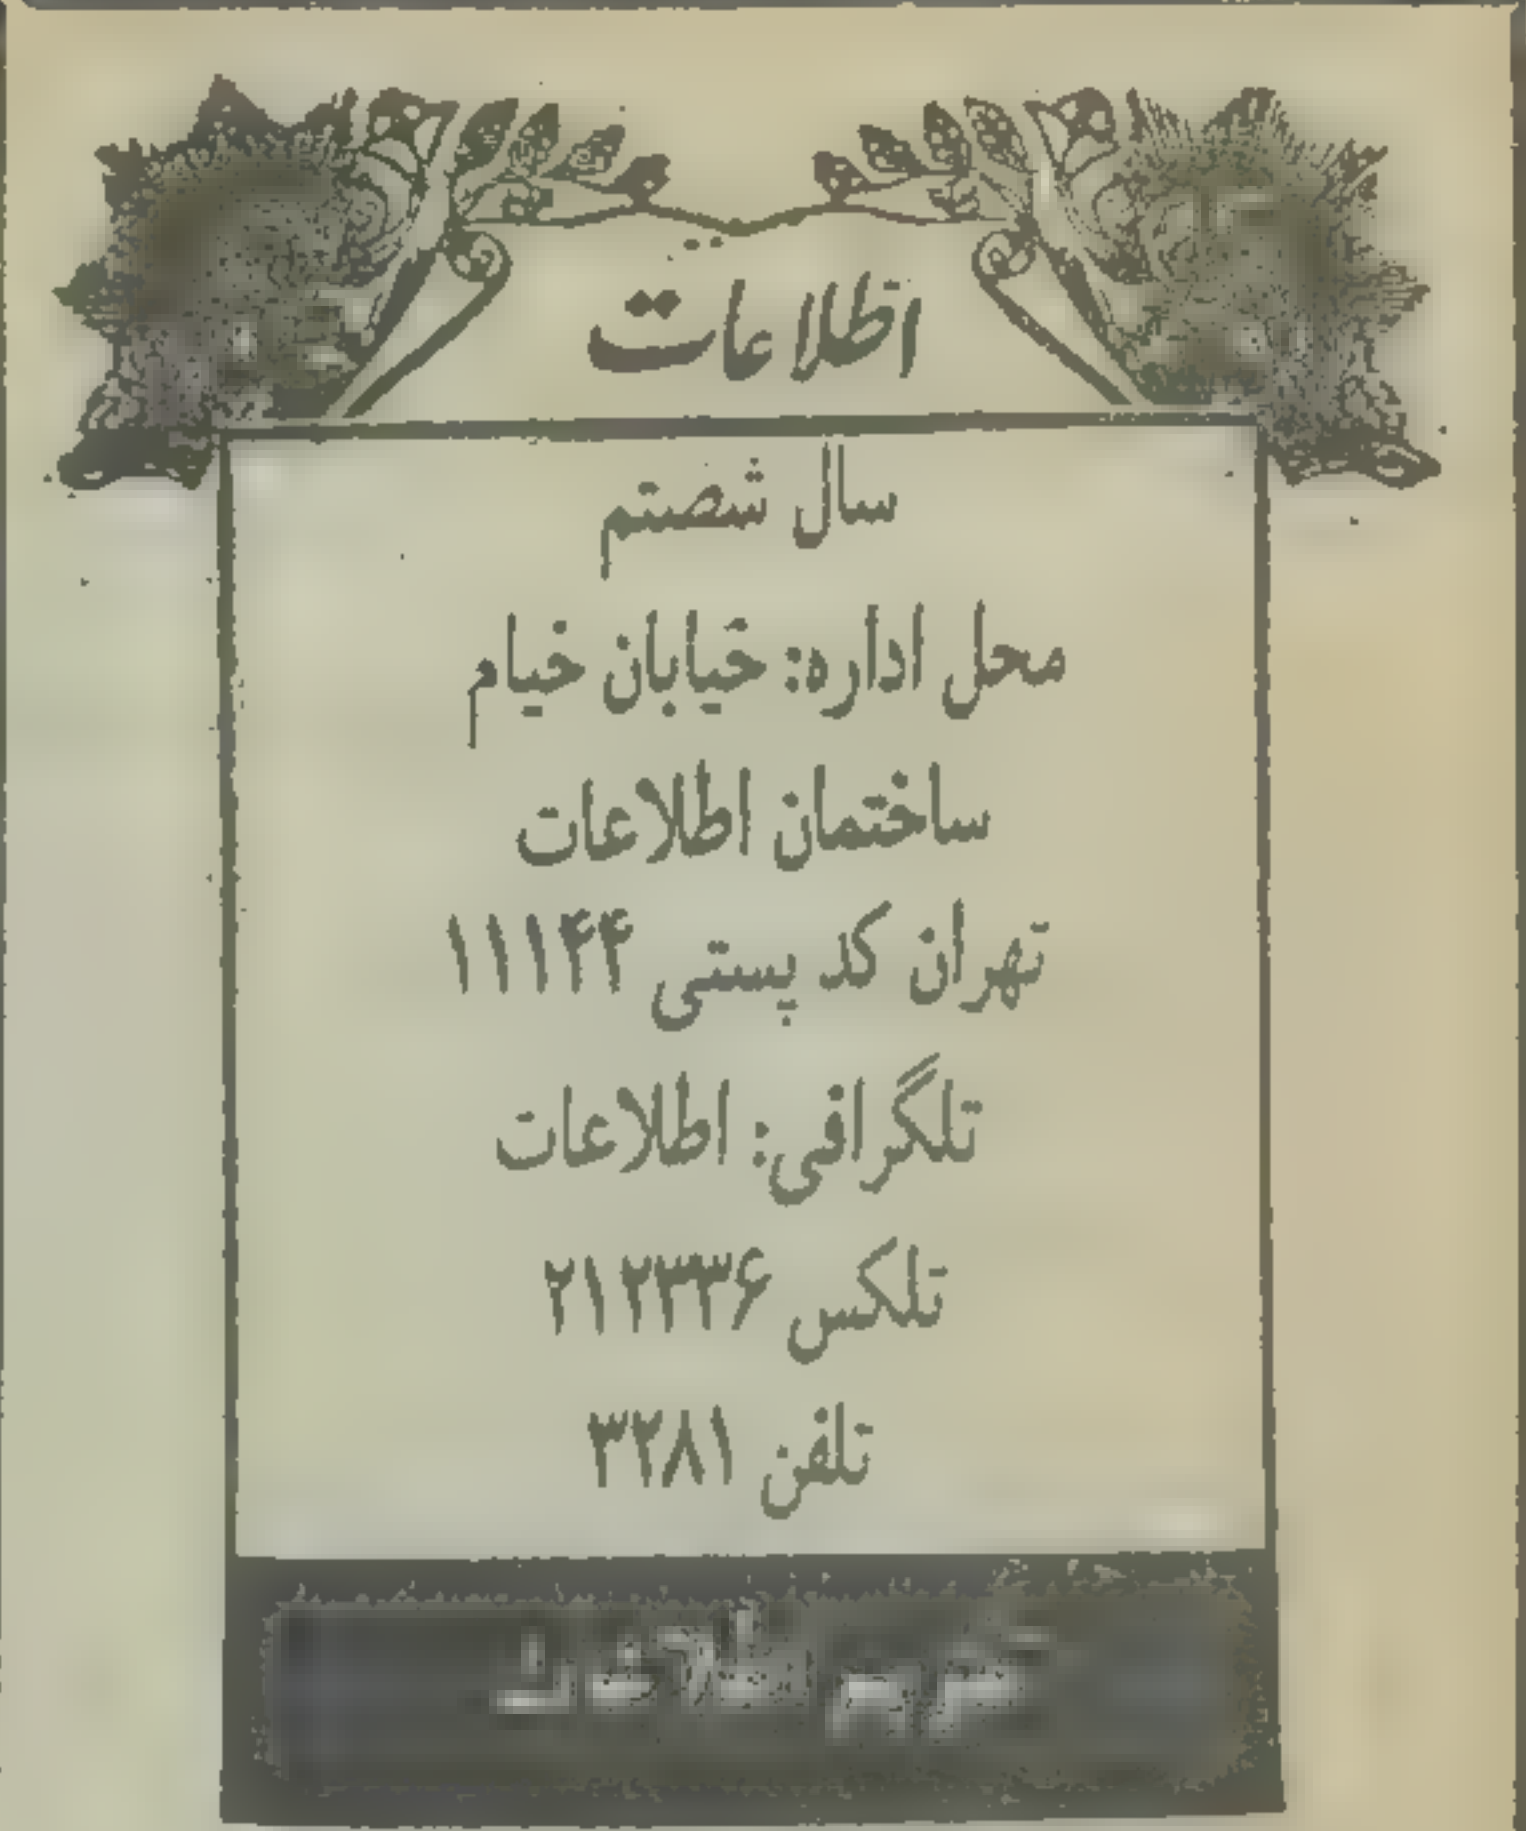 اطلاعات
سال شصتم
محل اداره: خیابان خیام
ساختمان اطلاعات
تهران کد پستی ۱۱۱۴۴
تلگرافی: اطلاعات
تلکس ۲۱۲۳۳۶
تلفن ۳۲۸۱